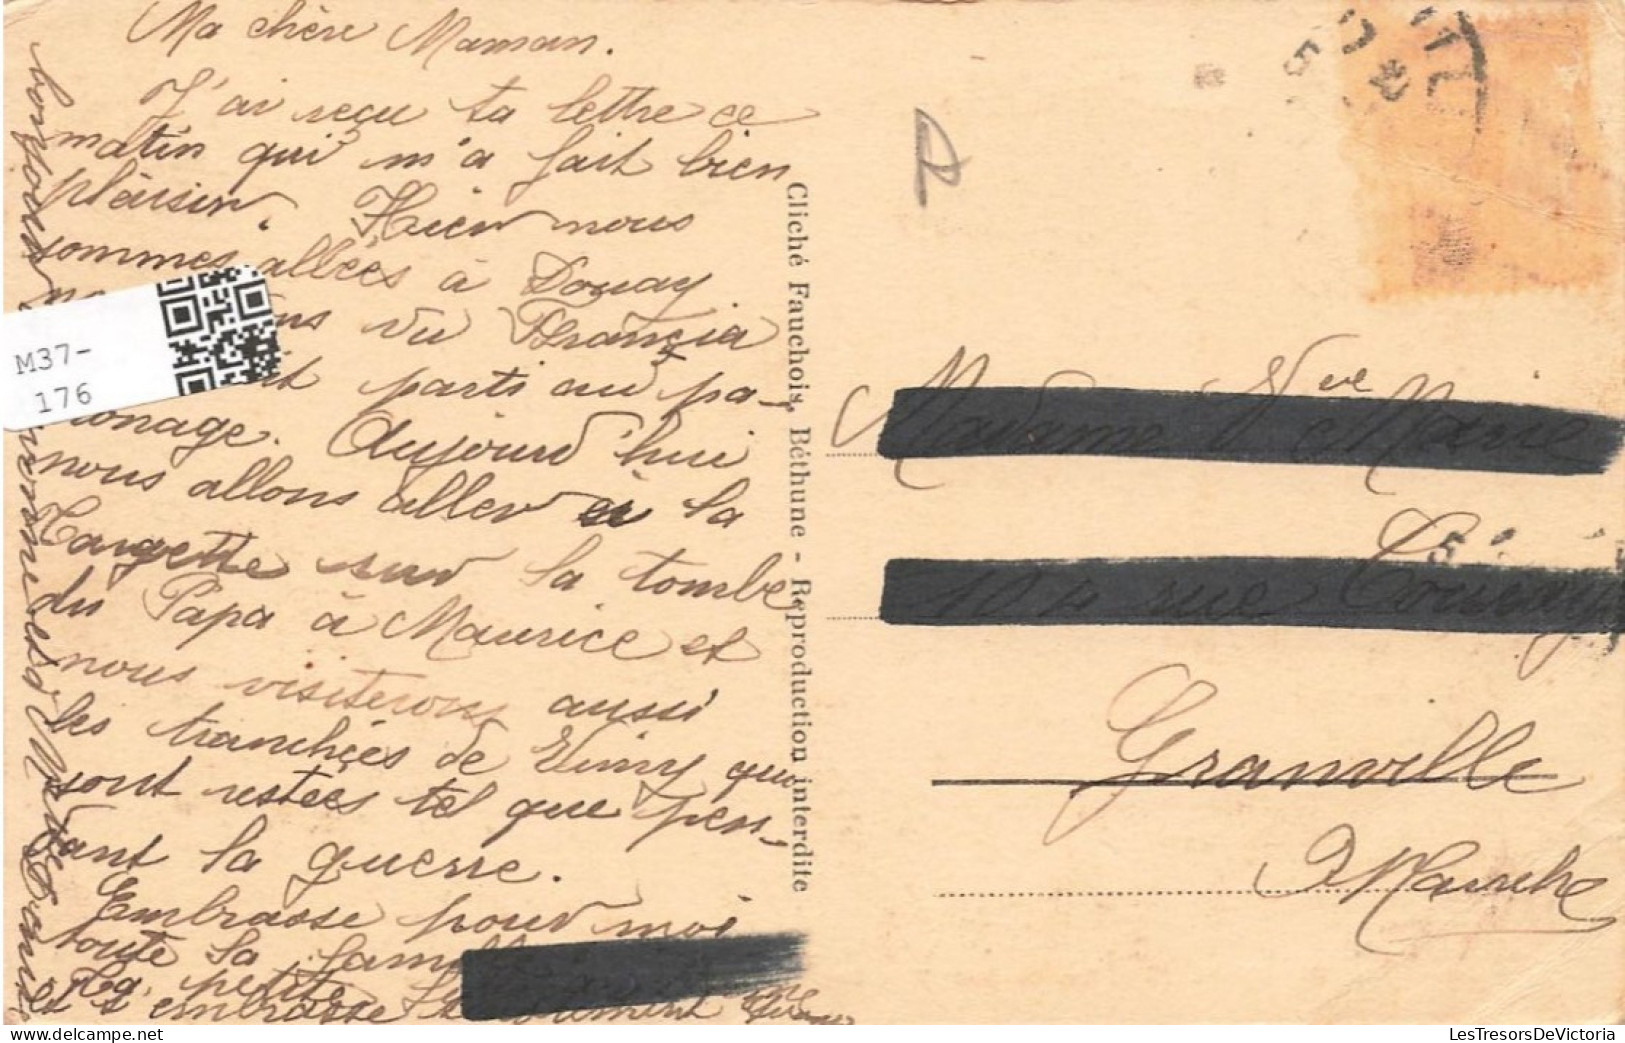 Ma chère Maman.
J'ai reçu ta lettre ce
matin qui m'a fait bien
plaisir. Hier nous
sommes allées à Douay
ns vu Françia
it parti au pa-
onage. Aujourd'hui
nous allons aller à la
Targette sur la tombe
du Papa à Maurice et
nous visiterons aussi
les tranchées de Vimy qui
sont restées tel que pen-
dant la guerre.
Embrasse pour moi
toute la fam
Ta petite
et t'embrasse
bonjour
M37-
176
Cliché Fauchois, Béthune - Reproduction interdite
Madame Vve Marie
104 rue Couraye
Granville
Manche
LesTresorsDeVictoria
delcampe.net